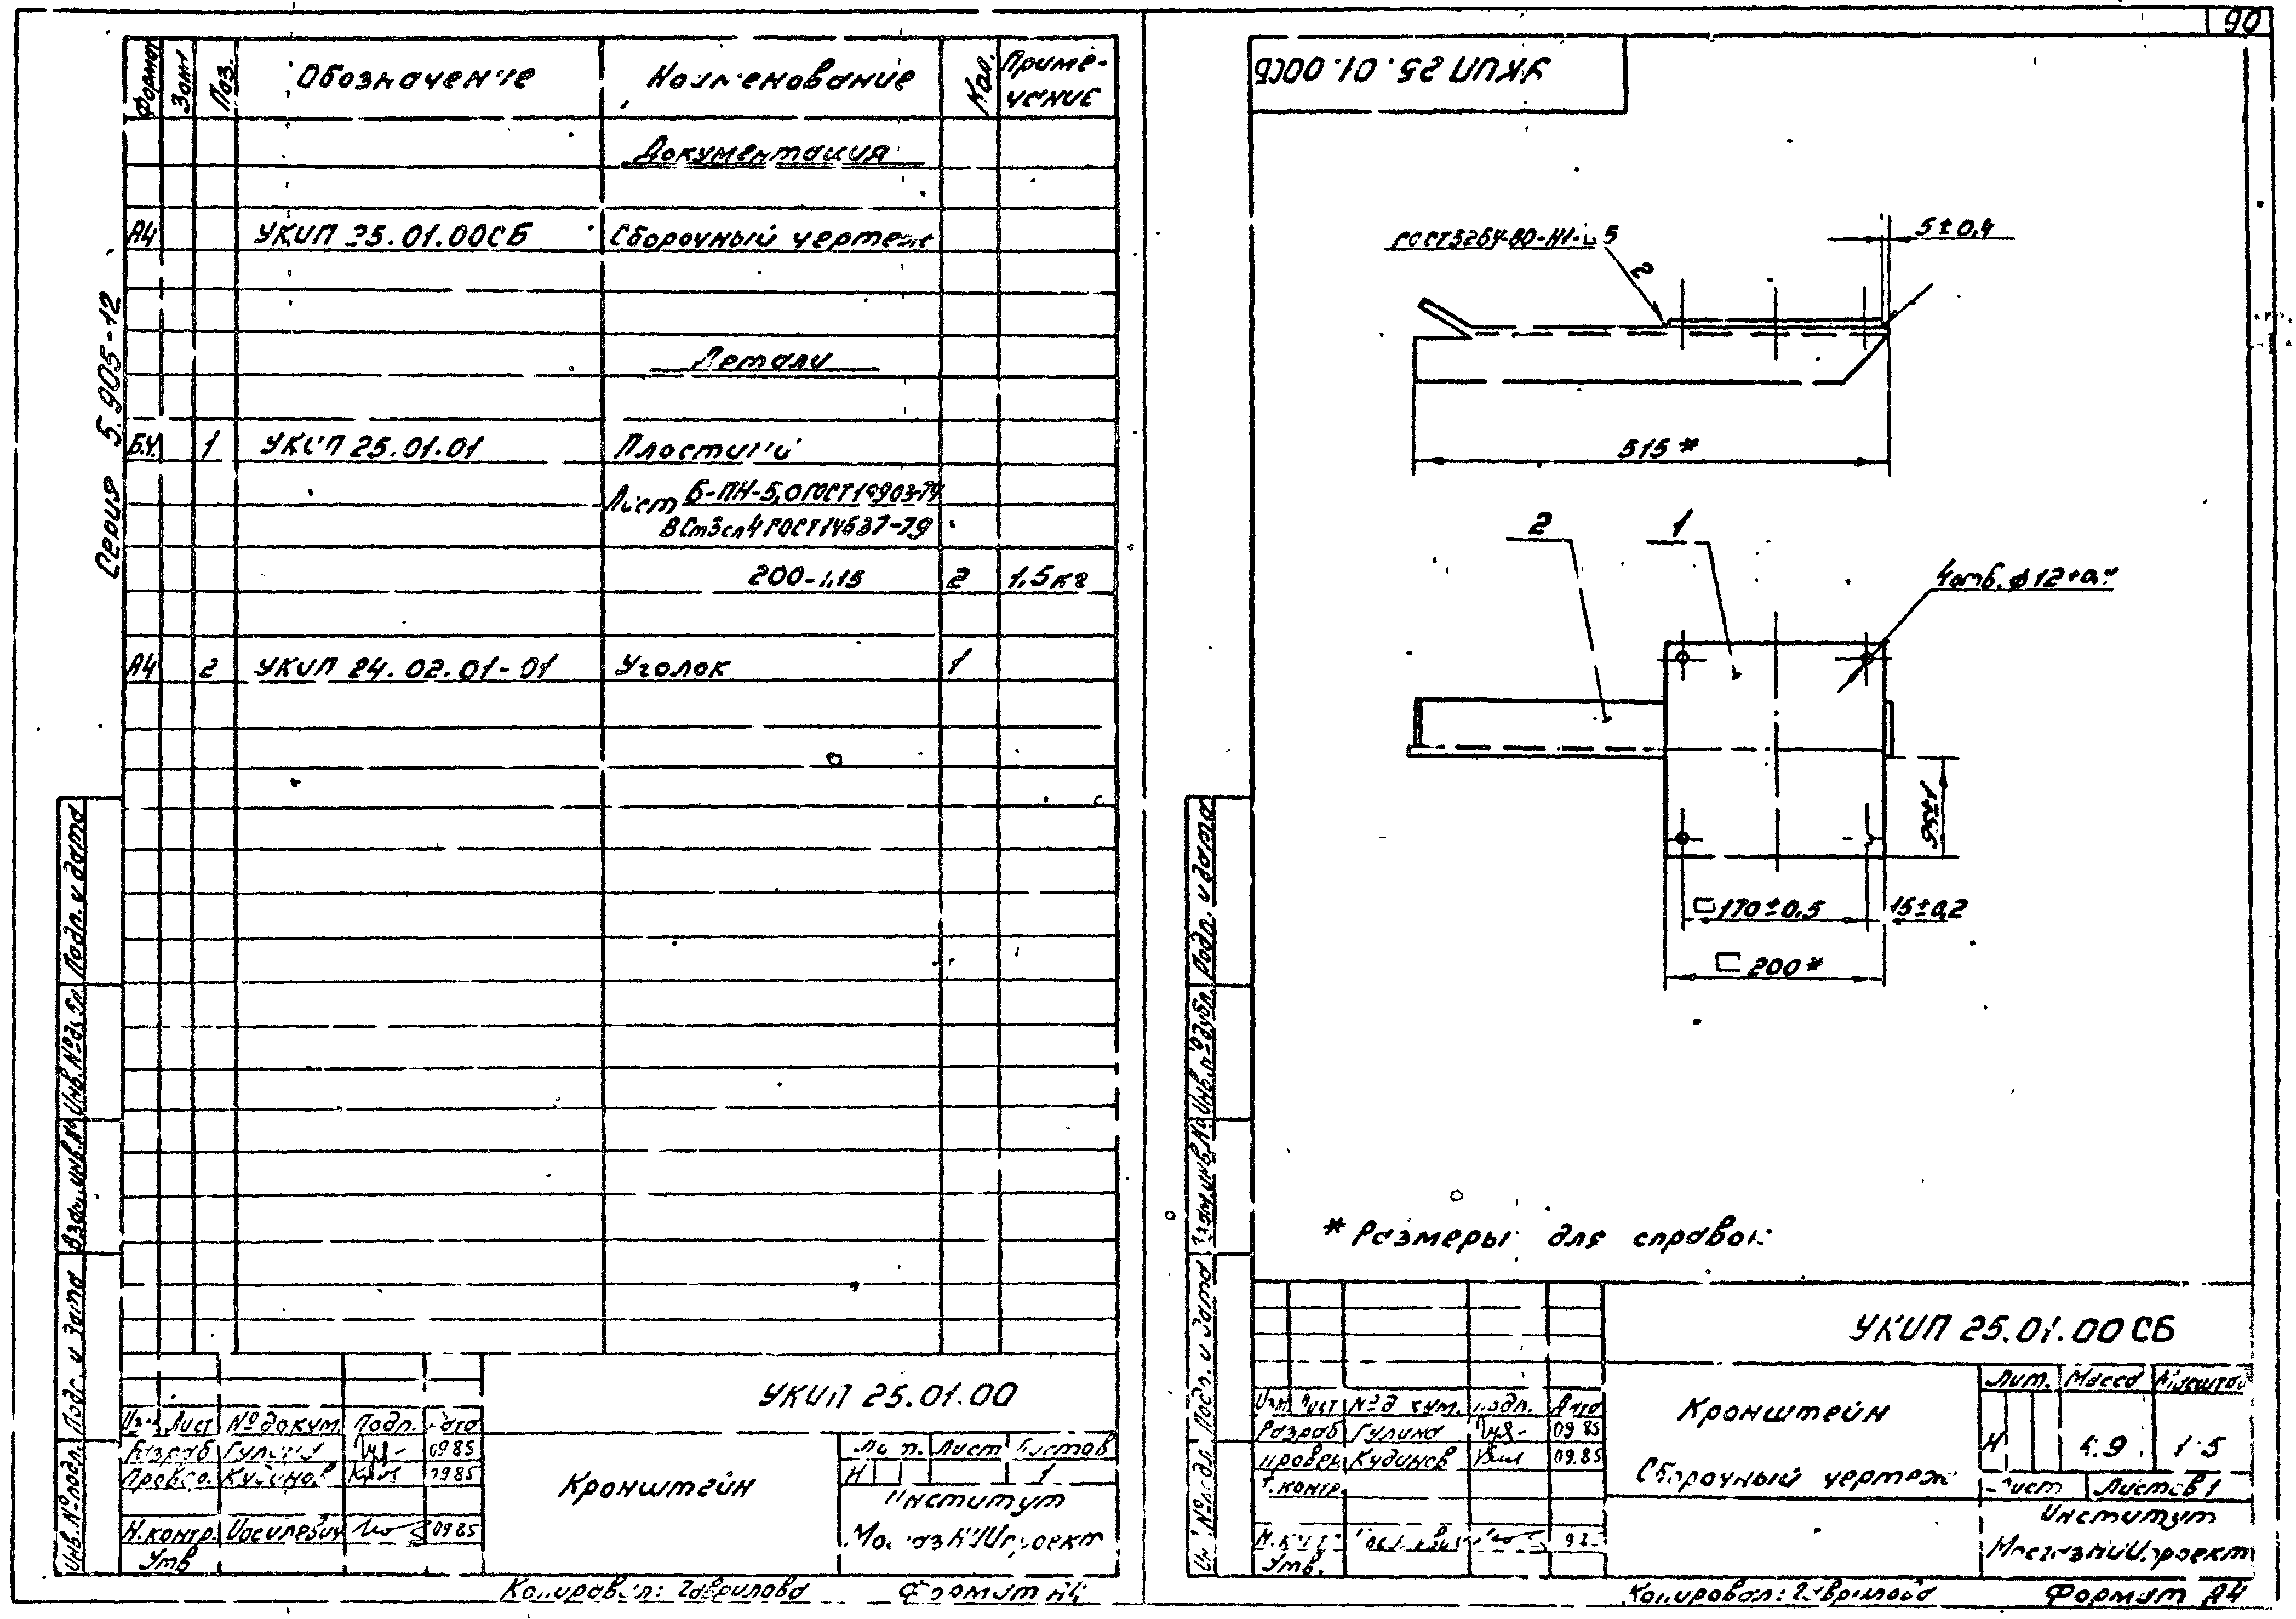 90
Серия 5.905-12
Формат Зона Поз. Обозначение Наименование Кол. Приме-
чание
Документация
А4 УКИП 25.01.00СБ Сборочный чертеж
Детали
Б.Ч. 1 УКИП 25.01.01 Пластина
Лист Б-ПН-5,0 ГОСТ 19903-74
ВСт3сп4 ГОСТ 14637-79
200-1,15 2 1,5кг
А4 2 УКИП 24.02.01-01 Уголок 1
Подп. и дата
Инв.№дубл.
Взам.инв.№
Подп. и дата
Инв.№подл.
УКИП 25.01.00
Изм Лист №докум. Подп. Дата
Разраб Гулина 09.85
Провер. Кудинов 09.85
Н.контр.
09.85
Утв
Кронштейн
Лит. Лист Листов
И 1
Институт
МосгазНИИпроект
Копировал: Гаврилова Формат А4
УКИП 25.01.00СБ
ГОСТ 5264-80-Н1-⊿5
2
5±0,4
515*
2 1
4отв. ϕ12
95±1
□170±0,5 15±0,2
□200*
* Размеры для справок
Подп. и дата
Инв.№дубл.
Взам.инв.№
Подп. и дата
Инв.№подл.
УКИП 25.01.00СБ
Изм. Лист №докум. Подп. Дата
Разраб Гулина 09.85
Провер. Кудинов 09.85
Т.контр.
Н.контр.
Утв.
Кронштейн
Сборочный чертеж
Лит. Масса Масштаб
И 4.9 1:5
Лист Листов 1
Институт
МосгазНИИпроект
Копировал: Гаврилова Формат А4